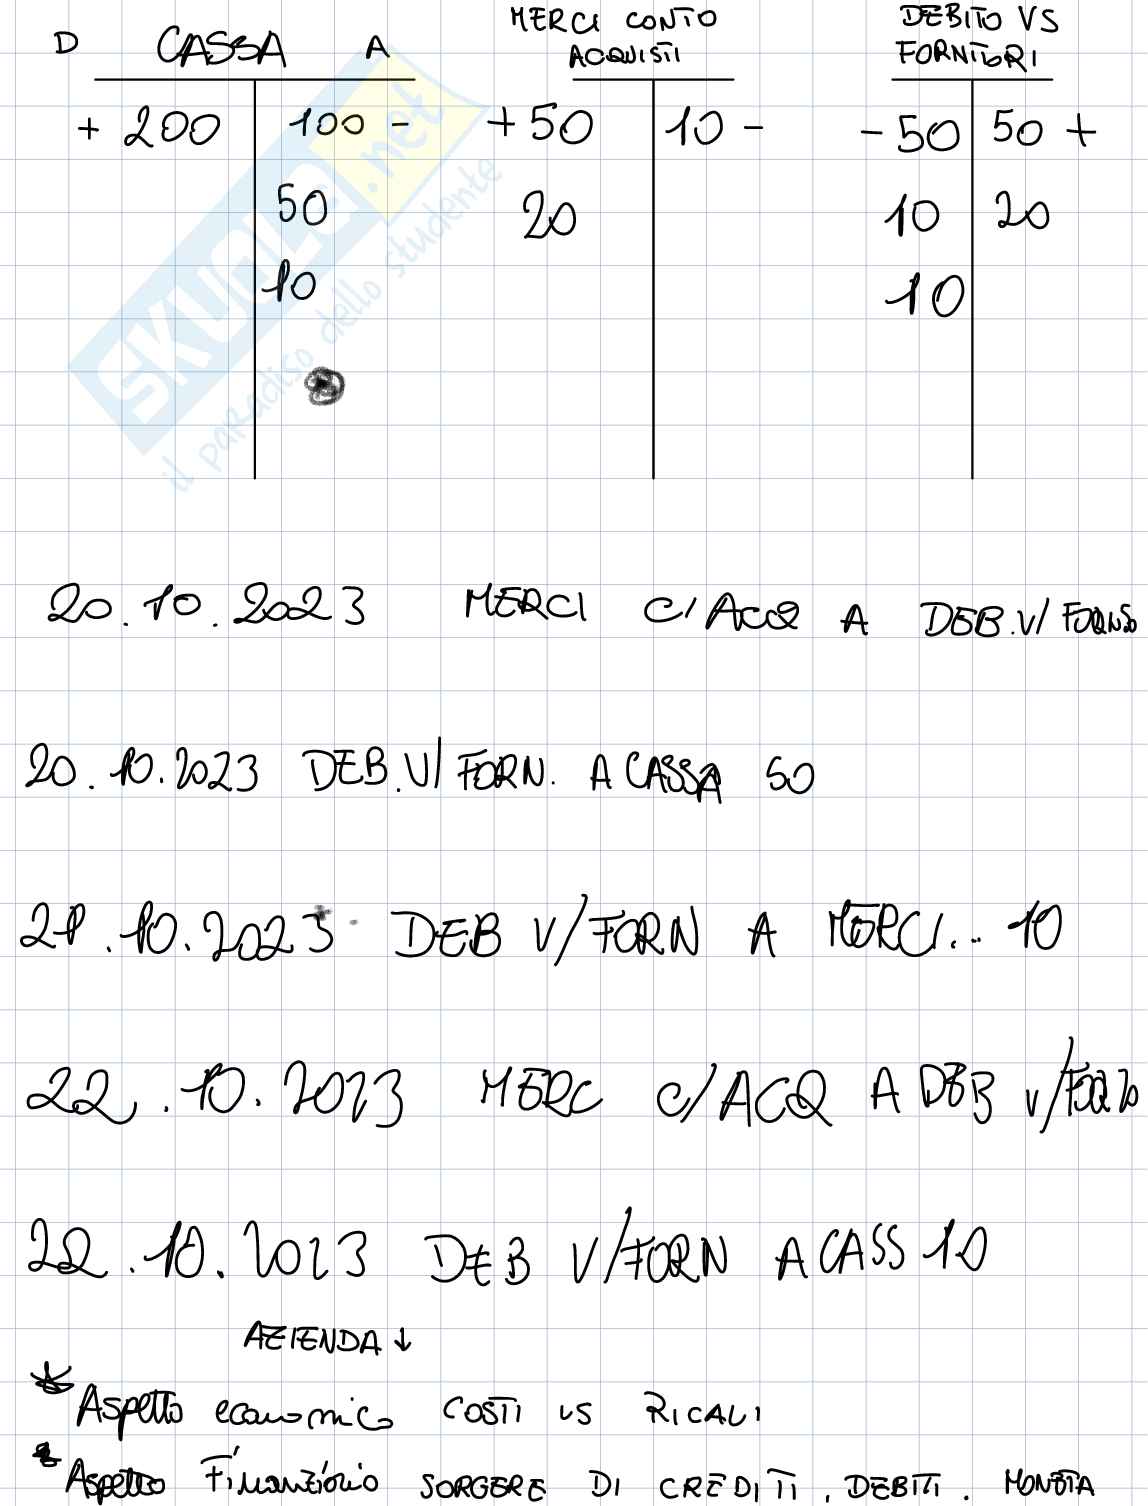 D CASSA A
MERCI CONTO
ACQUISTI
DEBITO VS
FORNITORI
+ 200 100 -
+ 50 10 -
- 50 50 +
50
20
10 20
10
10
SKUOLA.net
il paradiso dello studente
20.10.2023 MERCI C/ACQ A DEB.V/ FORN50
20.10.2023 DEB.V/ FORN. A CASSA 50
21.10.2023 DEB V/FORN A MERCI... 10
22.10.2023 MERC C/ACQ A DEB V/FOR20
22.10.2023 DEB V/FORN A CASS 10
AZIENDA ↓
* Aspetto economico COSTI VS RICAVI
* Aspetto Finanziario SORGERE DI CREDITI, DEBITI. MONETA